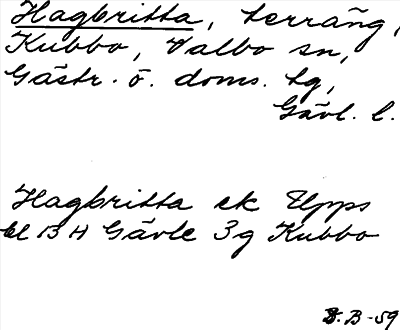 Hagbritta, terräng,
Kubbo, Valbo sn,
Gästr. ö. doms. tg,
Gävl. l.
Hagbritta ek Upps
bl 13 H Gävle 3g Kubbo
B-59